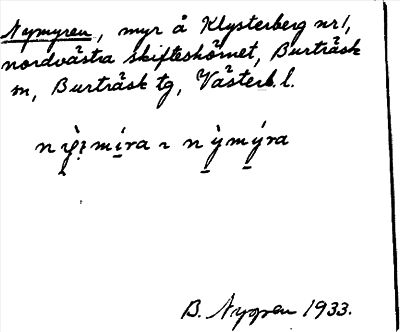 Nymyren, myr å Klysterberg nr 1,
nordvästra skifteshörnet, Burträsk
m, Burträsk tg, Västerb. l.
B. Nygren 1933.